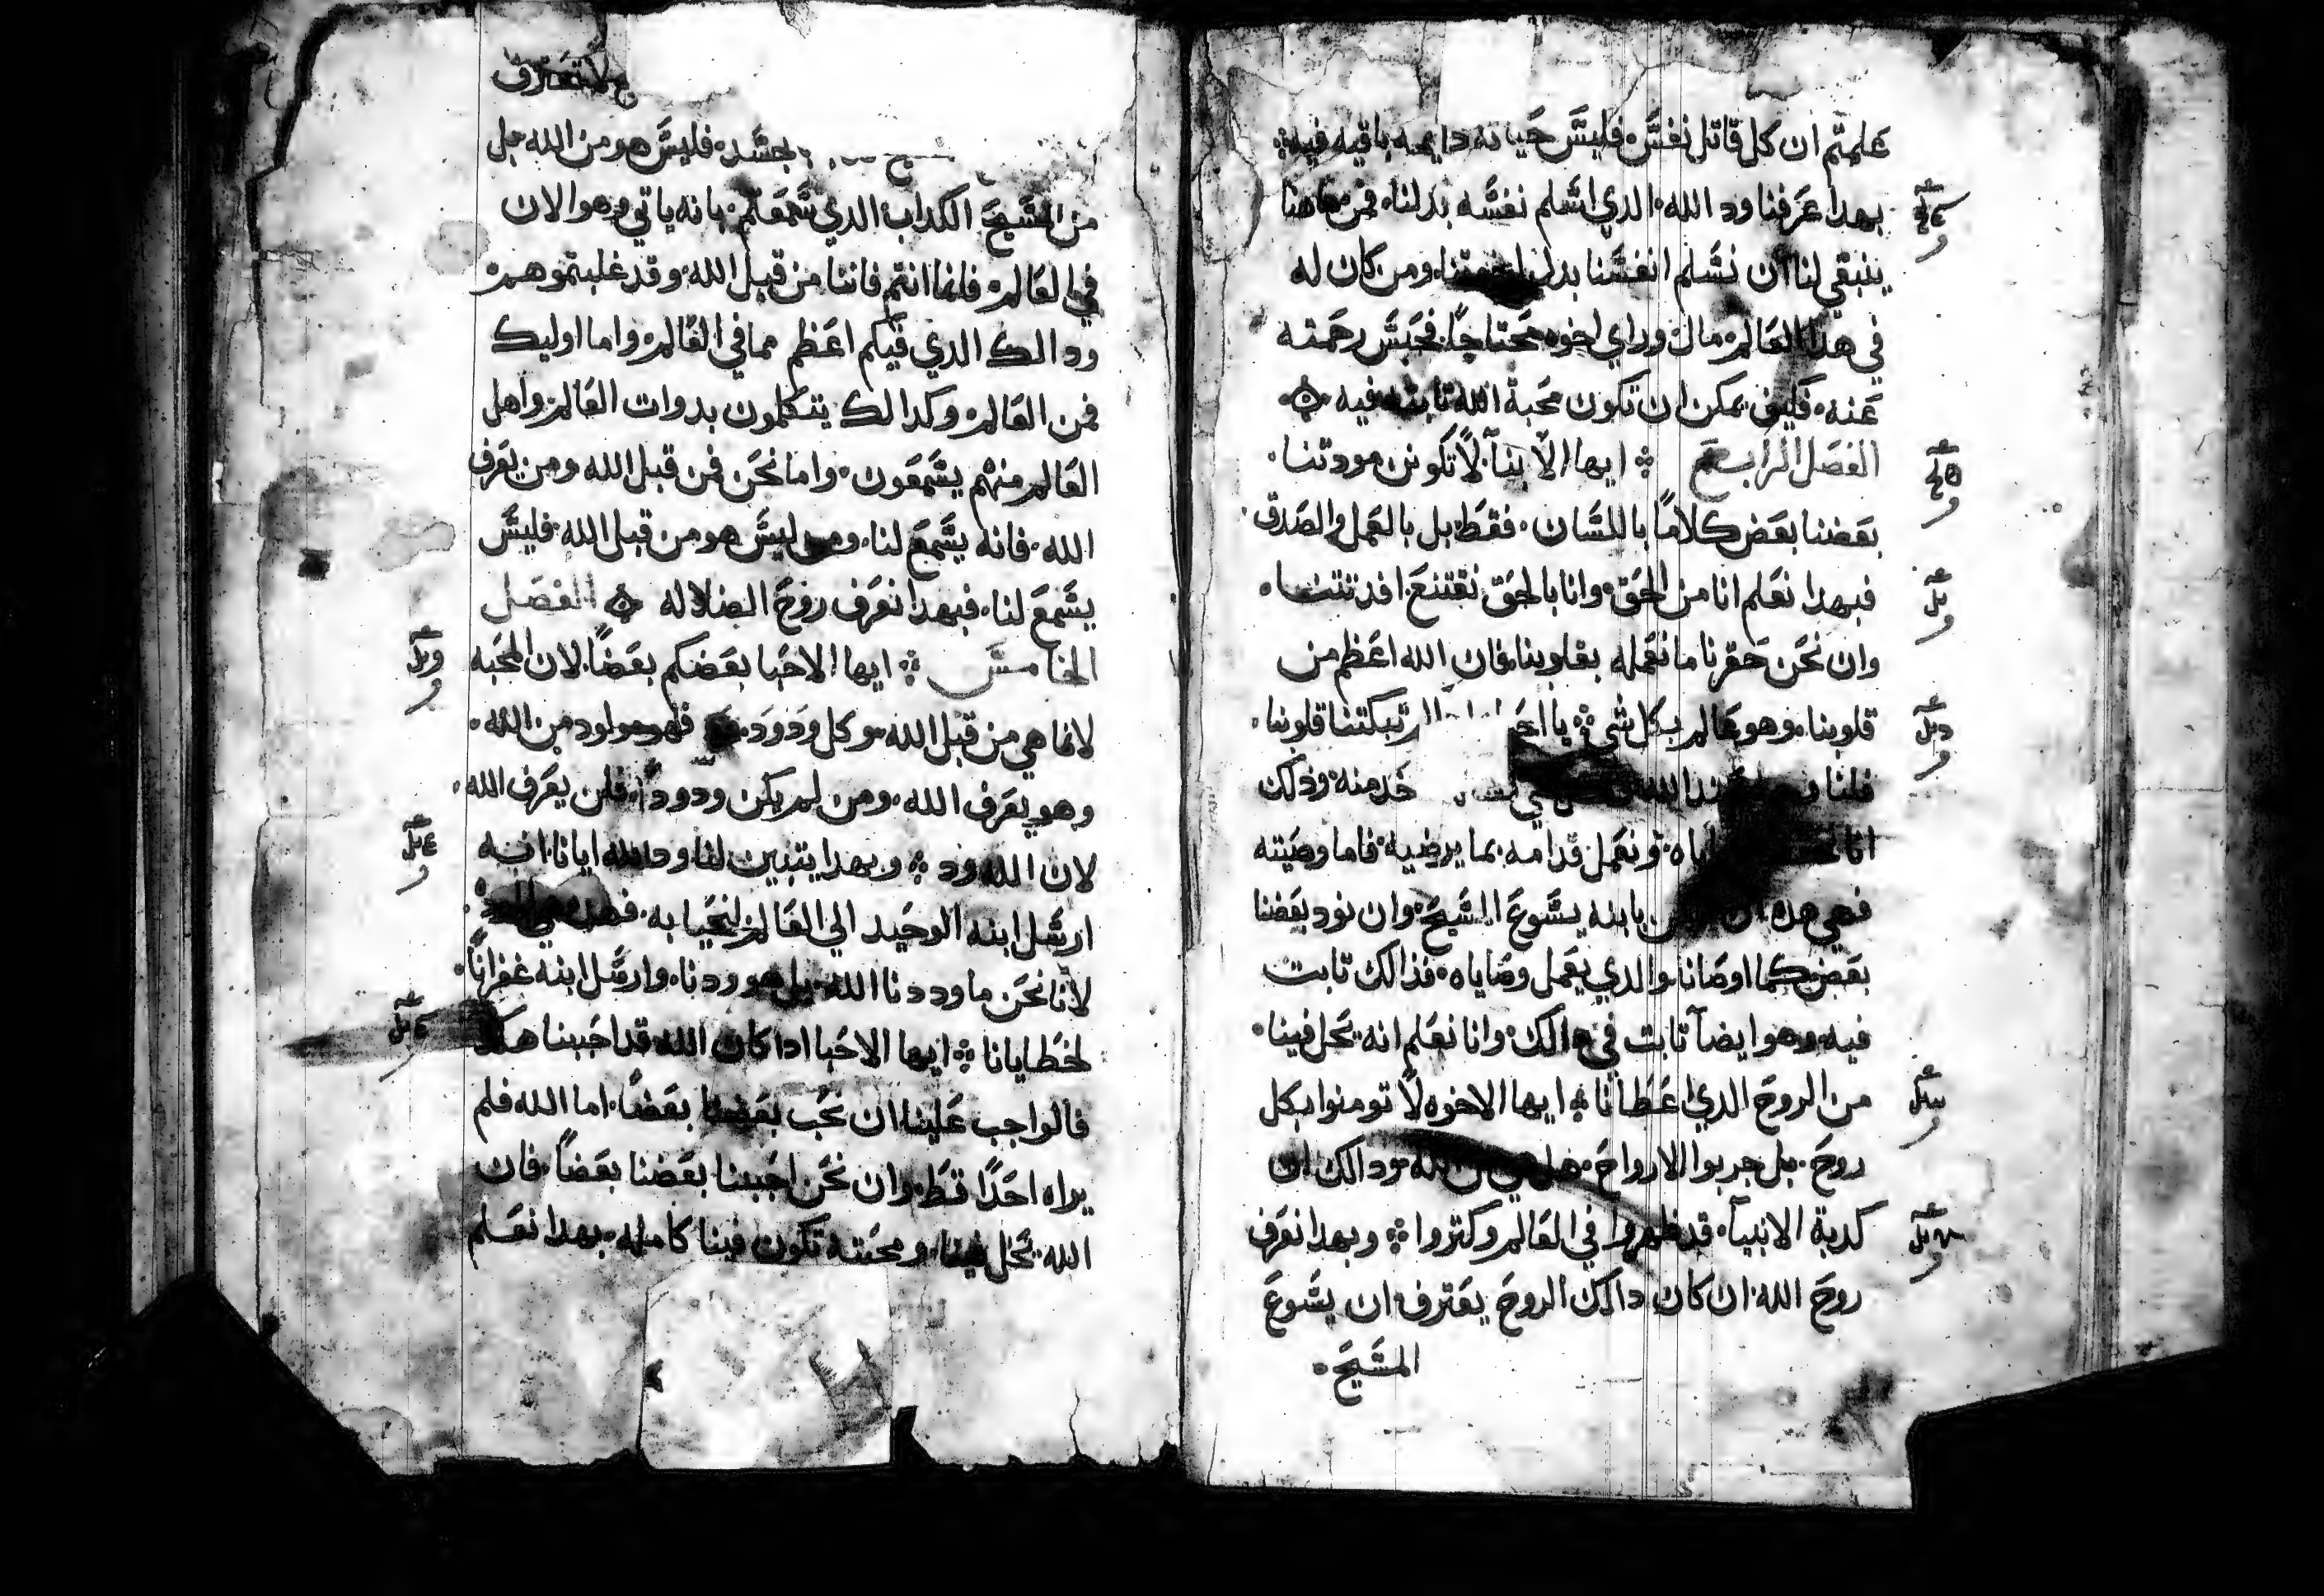 علمتم ان كل قاتل نفسً فليسً حَياته دايمه باقيه فيه
بهدا عَرفنا ود الله الدي اسًلم نفسًه بدلنا فمن هاهنا
ينبقي لنا ان نسًلم انفسًنا بدل ومن كان له
في هدا العَالم مال وراي اخوه محَتاجًا فحَبسً رحَمته
عَنه فكيف يمكن ان تكون محَبة الله ثابته فيه
الفصَل الرابعَ ايها الابنآ لا تكونن مودتنا
بعَضنا بعَض كلاماً باللسًان فقطَ بل بالعَمل والصَدق
فبهدا نعَلم انا من الحَق وانا بالحَق نقتنعَ افدتنا
وان نحَن حَقرنا ما نعَمله بقلوبنا فان الله اعَظم من
قلوبنا وهو عَالم بكل شي يا تبكتنا قلوبنا
فلنا الله خَد منه ودلك
انا اياه ونعَمل قدامه بما يرضيه فاما وصَيته
فهي هده ان بابنه يسًوعَ المسًيحَ وان نود بعَضنا
بعَض كما اوصَانا والدي يعَمل وصَاياه فدالك تابت
فيه وهو ايضاً تابت في دالك وانا نعَلم انه يحَل فينا
من الروحَ الدي اعَطَانا ايها الاخوه لا تومنوا بكل
روحَ بل جربوا الارواحَ هل هي من الله ودالك ان
كدبة الانبيآ قد ظهروا في العَالم وكتروا وبهدا نعَرف
روحَ الله ان كان دالك الروحَ يعَترف ان يسًوعَ
المسًيحَ
لا تعَترف
بجسًد فليسً هو من الله بل
من المسًيحَ الكداب الدي سًمعَتم بانه ياتي وهو الان
في العَالم فاما انتم فانتا من قبل الله وقد غلبتموهم
ودالك الدي فيكم اعَظم مما في العَالم واما اوليك
فمن العَالم وكدالك يتكلمون بدوات العَالم واهل
العَالم منهم يسًمعَون واما نحَن فمن قبل الله ومن يعَرف
الله فانه يسًمعَ لنا ومن ليسً هو من قبل الله فليسً
يسًمعَ لنا فبهدا نعَرف روحَ الضلاله الفصَل
الخامسً ايها الاحَبا بعَضكم بعَضاً لان المحَبه
لانما هي من قبل الله وكل ودود فهو مولود من الله
وهو يعَرف الله ومن لم يكن ودوداً فلن يعَرف الله
لان الله ود وبهدا يتبين لنا ود الله ايانا انه
ارسًل ابنه الوحَيد الي العَالم لنحَيا به فهده هي المودة
لانا نحَن ما وددنا الله بل هو ودنا وارسًل ابنه غفراناً
لخطَايانا ايها الاحَبا ادا كان الله قد احَبنا هكدا
فالواجب عَلينا ان نحَب بعَضنا بعَضاً اما الله فلم
يراه احَداً قطَ وان نحَن احَببنا بعَضنا بعَضاً فان
الله يحَل فينا ومحَبته تكون فينا كامله بهدا نعَلم